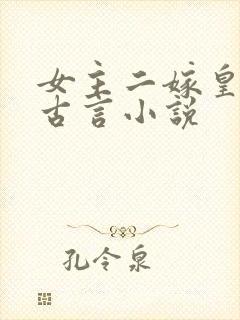 女主二嫁皇
古言小说
孔令泉